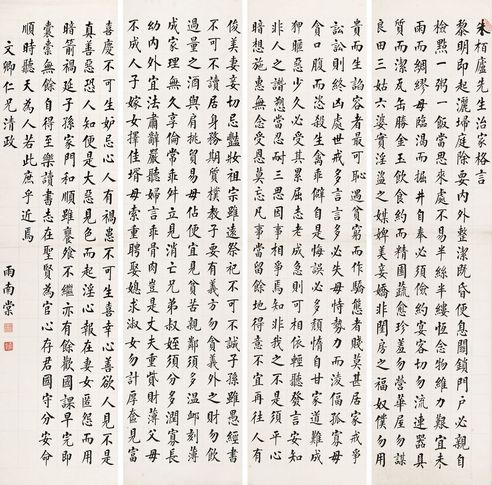 朱栢廬先生治家格言
黎明即起灑埽庭除要內外整潔既昏便息關鎖門戶必親自
檢點一粥一飯當思來處不易半絲半縷恆念物維力艱宜未
雨而綢繆毋臨渴而掘井自奉必須儉約宴客切勿流連器具
質而潔瓦缶勝金玉飲食約而精園蔬愈珍羞勿營華屋勿謀
良田三姑六婆實淫盜之媒婢美妾嬌非閨房之福奴僕勿用
俊美妻妾切忌艷妝祖宗雖遠祭祀不可不誠子孫雖愚經書
不可不讀居身務期質樸教子要有義方勿貪義外之財勿飲
過量之酒與肩挑貿易毋佔便宜見貧苦親鄰須多溫卹刻薄
成家理無久享倫常乖舛立見消亡兄弟叔姪須分多潤寡長
幼內外宜法肅辭嚴聽婦言乖骨肉豈是丈夫重貲財薄父母
不成人子嫁女擇佳壻毋索重聘娶媳求淑女勿計厚奩見富
貴而生諂容者最可恥遇貧窮而作驕態者賤莫甚居家戒爭
訟訟則終凶處世戒多言言多必失毋恃勢力而淩偪孤寡毋
貪口腹而恣殺生禽乖僻自是悔誤必多頹惰自甘家道難成
狎暱惡少久必受其累屈志老成急則可相依輕聽發言安知
非人之譖愬當忍耐三思因事相爭焉知非我之不是須平心
暗想施惠無念受恩莫忘凡事當留餘地得意不宜再往人有
喜慶不可生妒忌心人有禍患不可生喜幸心善欲人見不是
真善惡恐人知便是大惡見色而起淫心報在妻女匿怨而用
暗箭禍延子孫家門和順雖饔飧不繼亦有餘歡國課早完即
囊橐無餘自得至樂讀書志在聖賢為官心存君國守分安命
順時聽天為人若此庶乎近焉
文卿仁兄清政
雨南棠